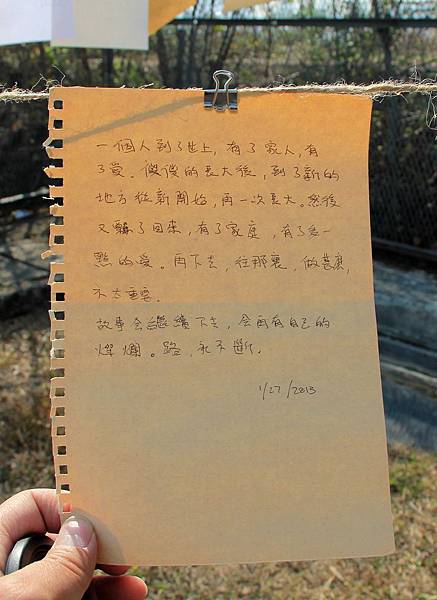 一個人到了世上，有了家人，有
了愛。傻傻的長大後，到了新的
地方從新開始，再一次長大。然後
又飄了回來，有了家庭，有了多一
點的愛。再下去，往那裏，做甚麼，
不太重要。
故事會繼續下去，會有自己的
燦爛。路，永不斷.
1/27/2013